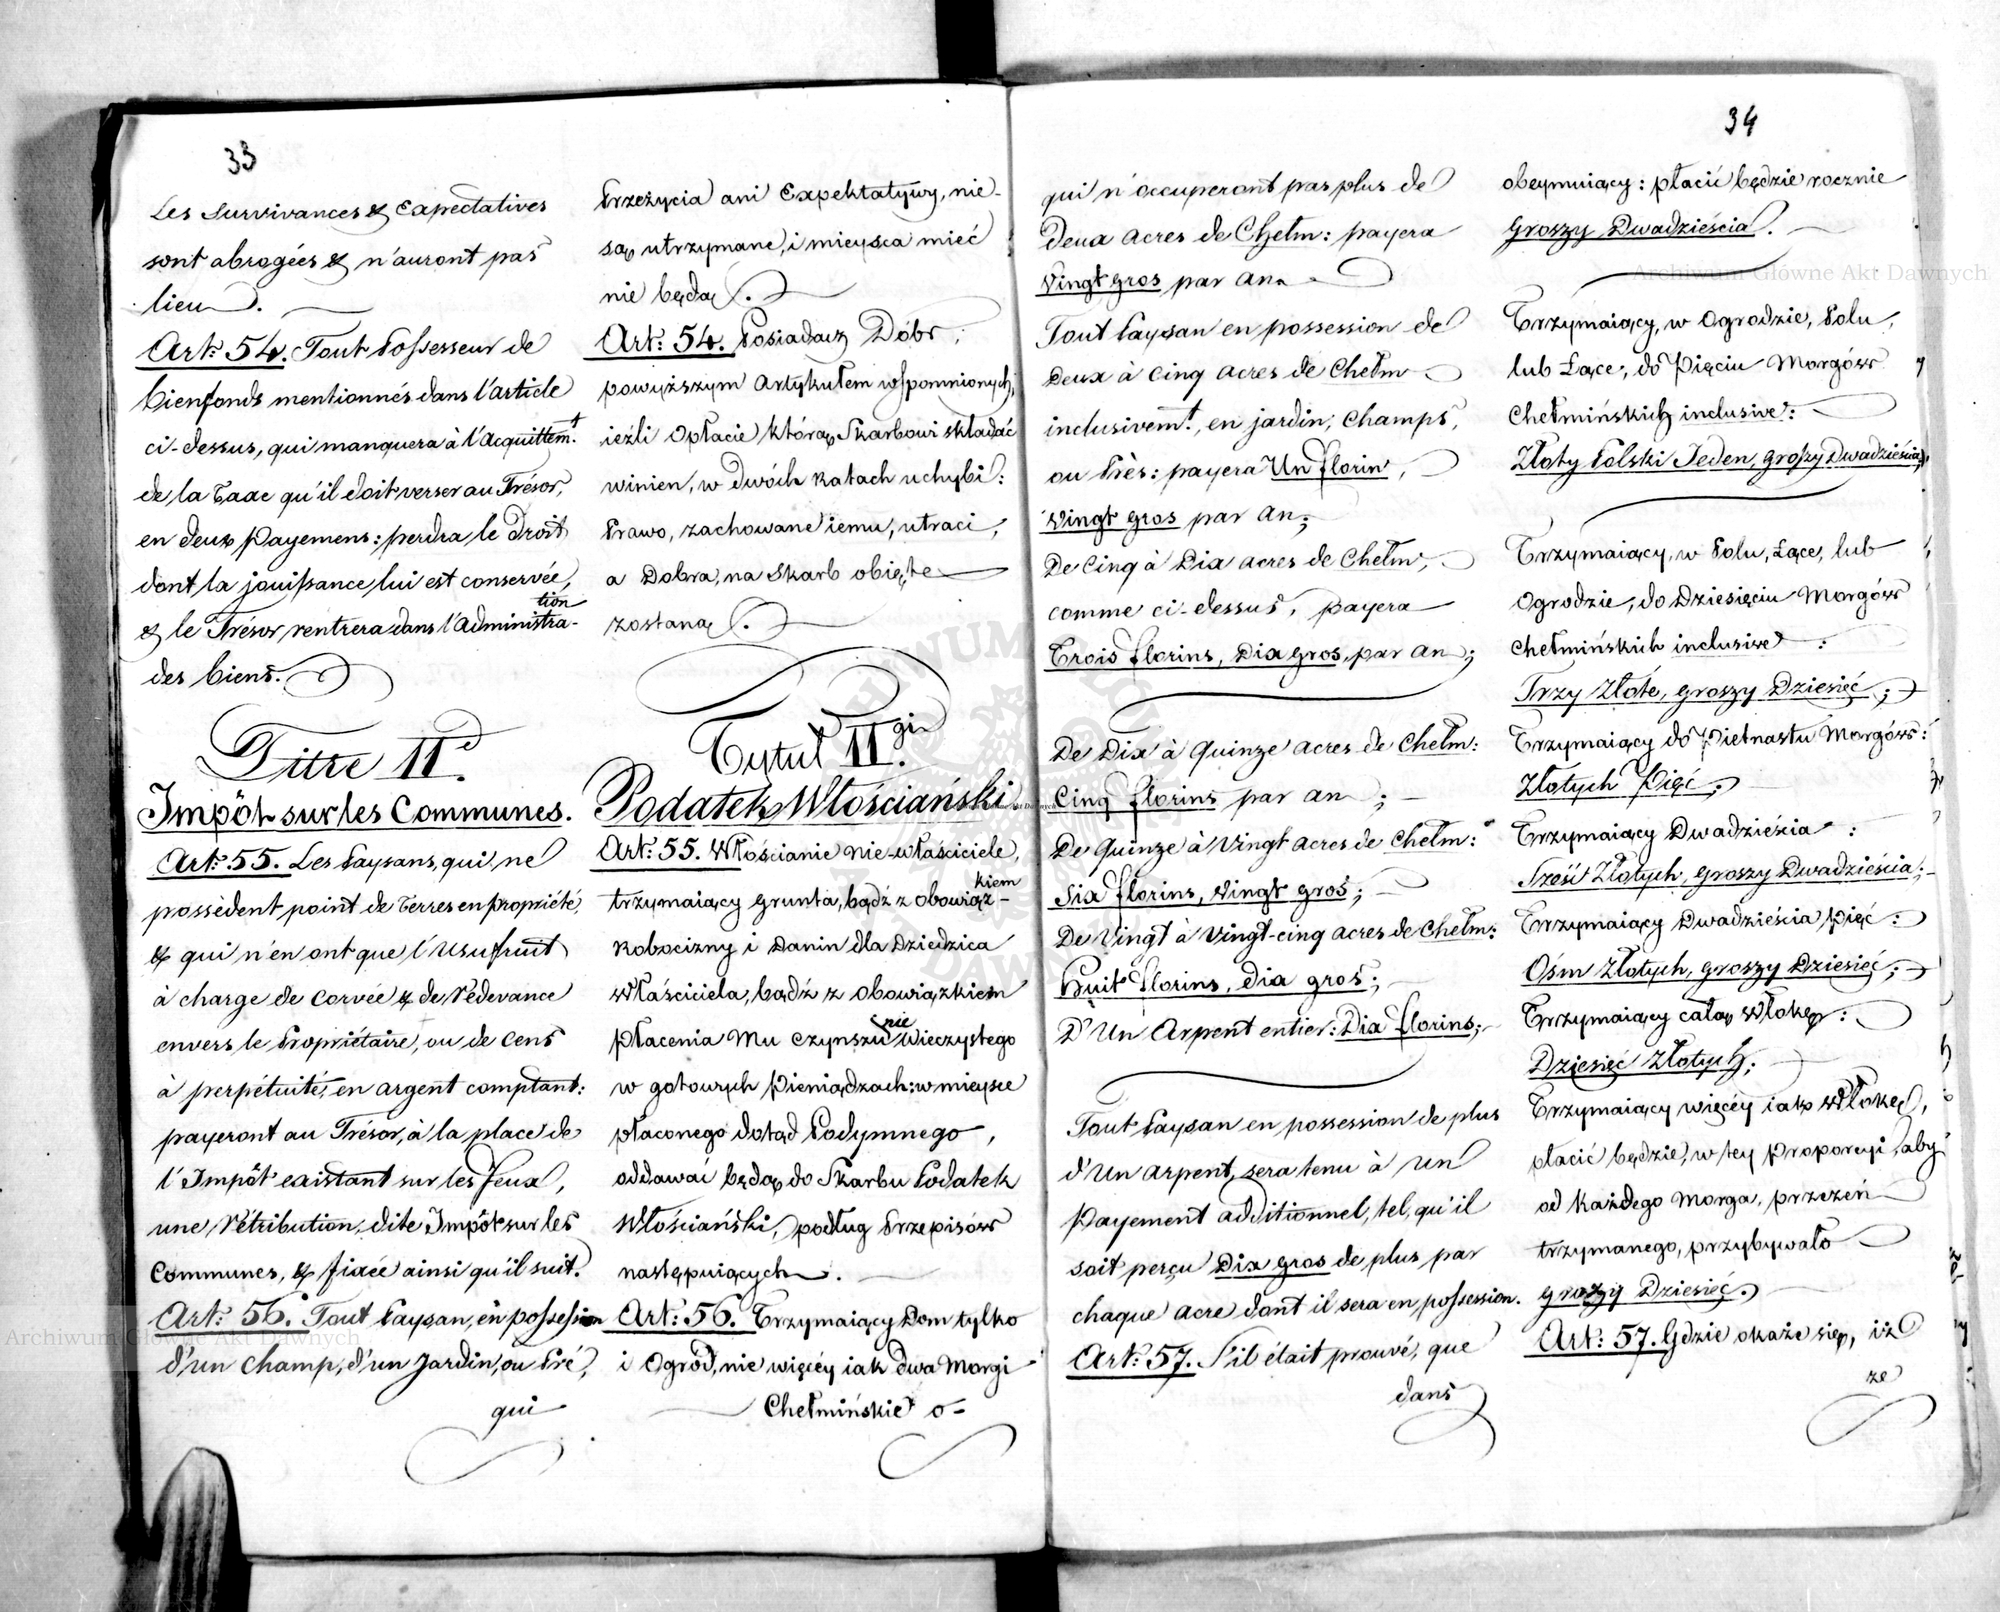 33
Les Survivances & Expectatives
sont abrogées & n'auront pas
lieu.
Art: 54. Tout Possesseur de
bienfonds mentionnés dans l'article
ci-dessus, qui manquera à l'acquittemt
de la Taxe qu'il doit verser au Trésor,
en deux payemens: perdra le droit
dont la jouissance lui est conservée,
& le Trésor rentrera dans l'administra-
tion
des biens.
Titre IId.
Impôt sur les Communes.
Art: 55. Les Paysans, qui ne
possèdent point de Terres en propriété,
& qui n'en ont que l'Usufruit
à charge de corvée & de rédevance
envers le Propriétaire, ou de cens
à perpétuité, en argent comptant:
payeront au Trésor, à la place de
l'Impôt existant sur les feux,
une rétribution, dite Impôt sur les
Communes, & fixée ainsi qu'il suit.
Art: 56. Tout Paysan, en possession
d'un champ, d'un Jardin, ou Pré,
qui
Przeżycia ani Expektatywy, nie-
są utrzymane, i mieysca mieć
nie będą.
Art: 54. Posiadacz Dóbr,
powyższym artykułem wspomnionych,
ieżli opłacie którą Skarbowi składać
winien, w dwóch Ratach uchybi:
Prawo, zachowane iemu, utraci,
a Dobra, na Skarb obięte
zostaną.
Tytuł IIgi.
Podatek Włościański
Art: 55. Włościanie nie-właściciele,
trzymaiący grunta, bądź z obowiąz-
kiem
Robocizny i Danin dla Dziedzica
Właściciela, bądź z obowiązkiem
płacenia Mu Czynszu nie Wieczystego
w gotowych Pieniądzach: w mieysce
płaconego dotąd Podymnego,
oddawać będą do Skarbu Podatek
Włościański, podług Przepisów
następuiących.
Art: 56. Trzymaiący Dom tylko
i Ogród, nie więcéy iak dwa Morgi
Chełmińskie o-
34
qui n'occuperont pas plus de
Deux acres de Chełm: payera
Vingt gros par an.
Tout Paysan en possession de
Deux à Cinq acres de Chełm
inclusivemt, en jardin, champs,
ou Près: payera Un florin,
Vingt gros par an;
De Cinq à Dix acres de Chełm,
comme ci-dessus, payera
Trois florins, Dix gros, par an;
De Dix à Quinze acres de Chełm:
Cinq florins par an;
De Quinze à Vingt acres de Chełm:
Six florins, Vingt gros;
De Vingt à Vingt-cinq acres de Chełm:
Huit florins, dix gros;
D'Un Arpent entier: Dix florins;
Tout Paysan en possession de plus
d'Un arpent, sera tenu à un
Payement additionnel, tel, qu'il
soit perçu Dix gros de plus par
chaque acre dont il sera en possession.
Art: 57. S'il était prouvé, que
dans
obeymuiący: płacić będzie rocznie
groszy Dwadzieścia.
Trzymaiący, w Ogrodzie, Polu,
lub Łące, do Pięciu Morgów
Chełmińskich inclusive:
Złoty Polski Jeden, groszy Dwadzieścia,
Trzymaiący, w Polu, Łące, lub
Ogrodzie, do Dziesięciu Morgów
Chełmińskich inclusive:
Trzy Złote, groszy Dziesięć;
Trzymaiący do Pietnastu Morgów:
Złotych Pięć;
Trzymaiący Dwadzieścia:
Sześć Złotych, groszy Dwadzieścia;
Trzymaiący Dwadzieścia pięć:
Ośm Złotych, groszy Dziesięć;
Trzymaiący całą Włokę:
Dziesięć Złotych;
Trzymaiący więcéy iak Włokę,
płacić będzie, w tey Proporcyi, aby
od każdego Morga, przezeń
trzymanego, przybywało
groszy Dziesięć.
Art: 57. Gdzie okaże się, iż
ze
Archiwum Główne Akt Dawnych
Archiwum Główne Akt Dawnych